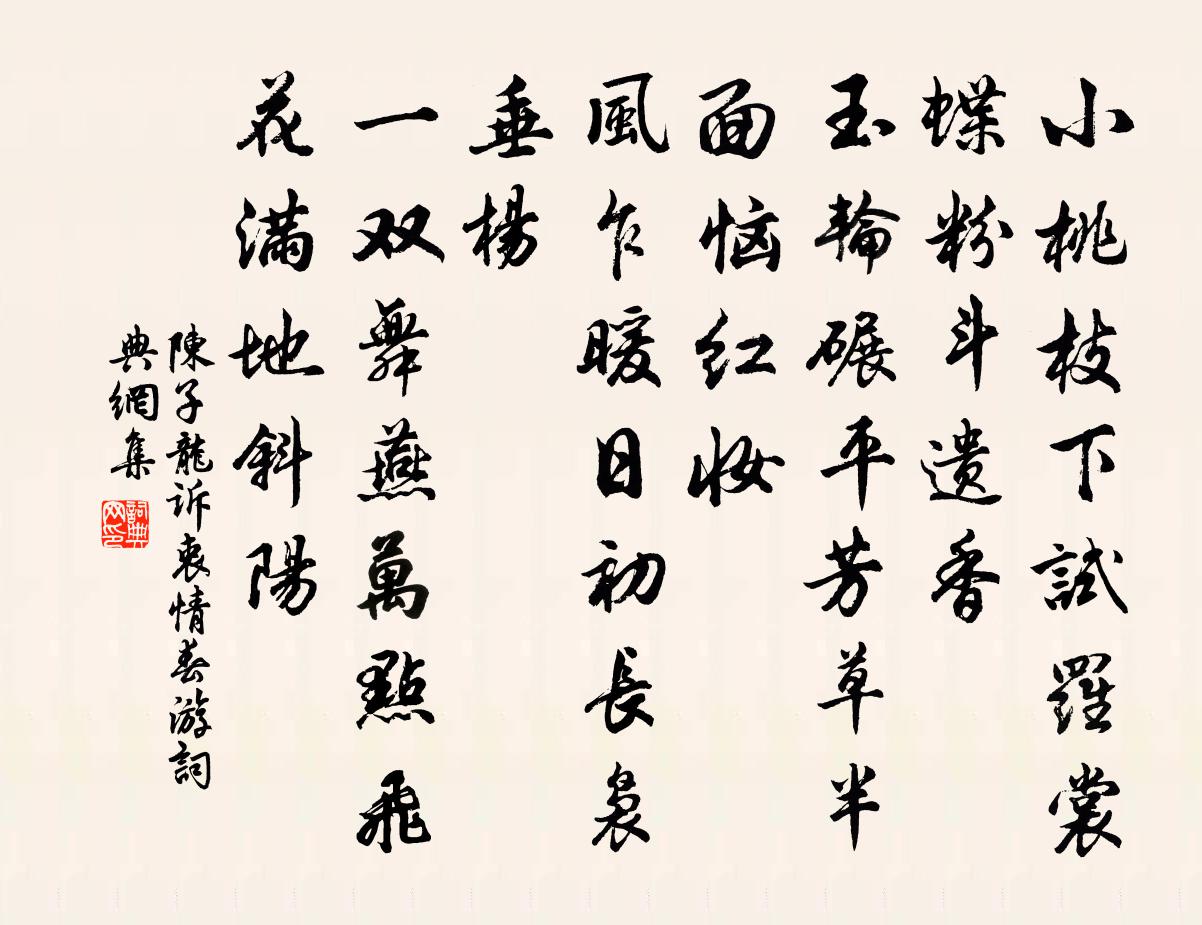 小桃枝下試羅裳
蝶粉斗遺香
玉輪碾平芳草半
面恼红妝
風乍暖日初長裊
垂楊
一双舞燕萬點飛
花滿地斜陽
陳子龍訴衷情春游詞
典網集
詞典網印